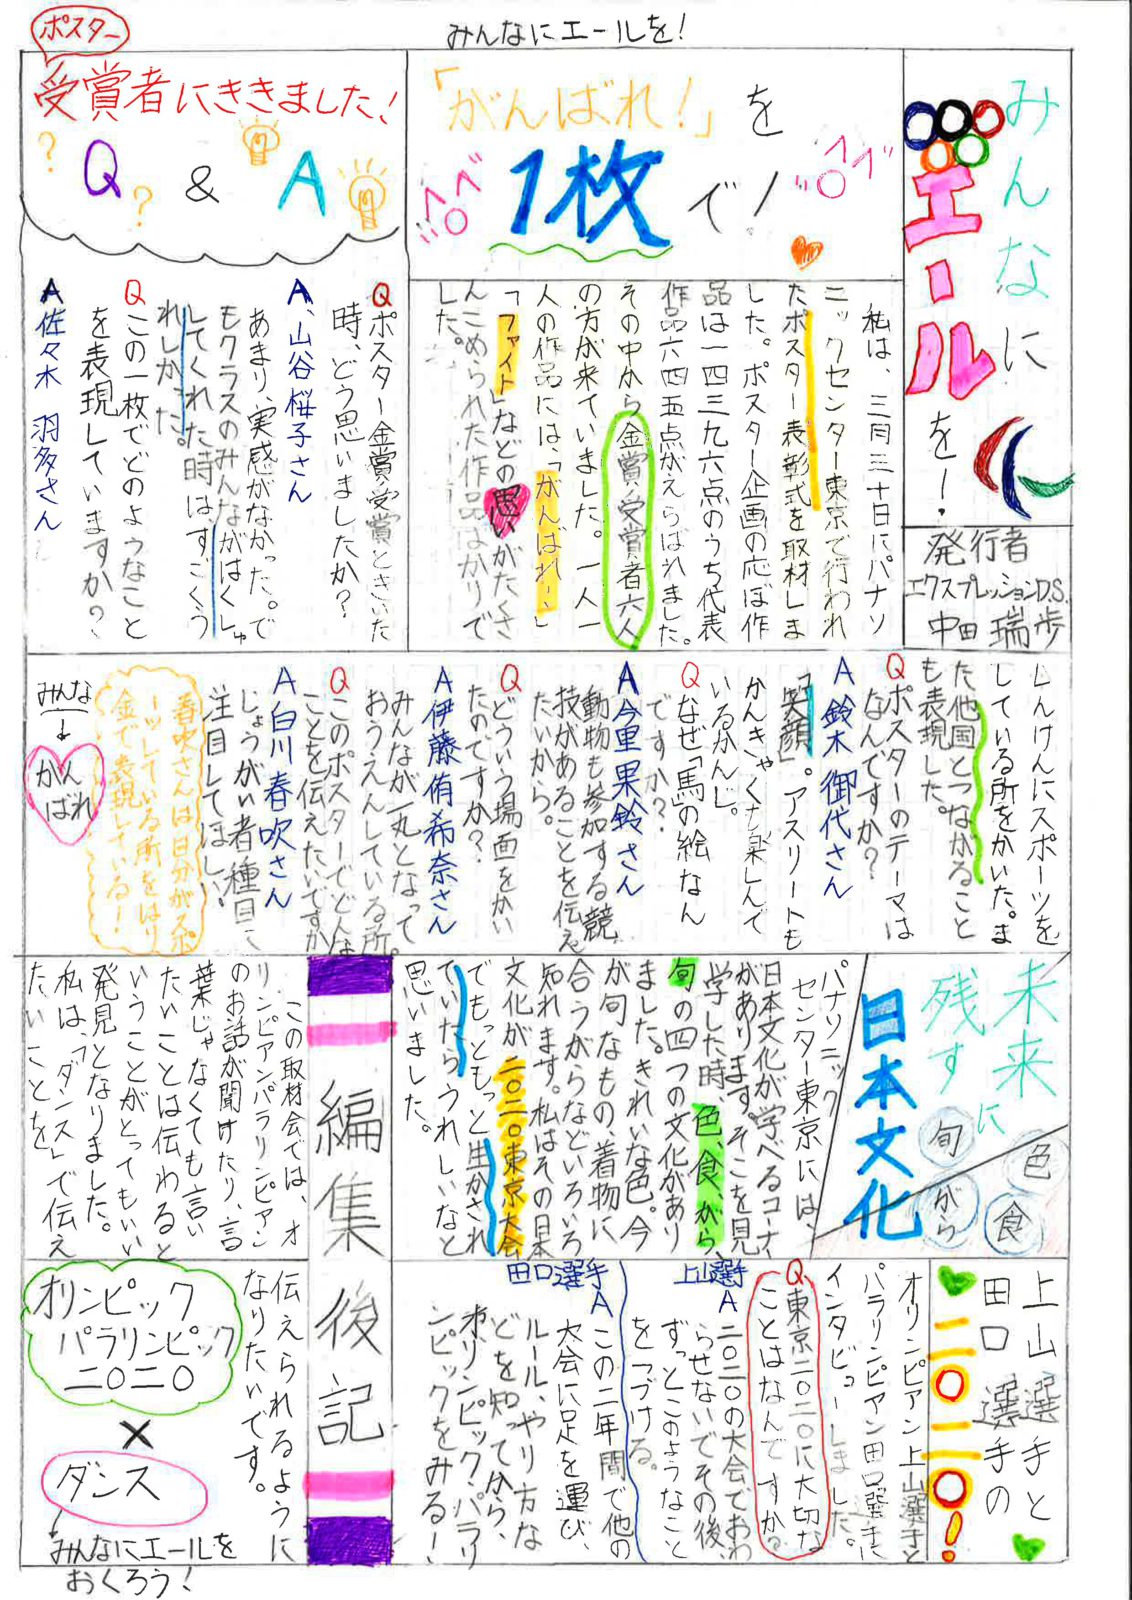 みんなにエールを!
みんなに
エール
を!
発行者
エクスプレッションD.S.
中田 瑞歩
「がんばれ!」を
1枚で!
私は、三月三十日にパナソ
ニックセンター東京で行われ
たポスター表彰式を取材しま
した。ポスター企画の応ぼ作
品は一四三九六点のうち代表
作品六四五点がえらばれました。
その中から金賞受賞者六人
の方が来ていました。一人一
人の作品には、「がんばれー」
「ファイト」などの思いがたくさ
んこめられた作品ばかりで
した。
ポスター
受賞者にききました!
Q & A
Qポスター金賞受賞ときいた
時、どう思いましたか?
A、山谷桜子さん
あまり、実感がなかった。で
もクラスのみんながはくしゅ
してくれた時はすごくう
れしかった。
Qこの一枚でどのようなこと
を表現していますか?
A佐々木 羽多さん
しんけんにスポーツを
している所をかいた。ま
た他国とつながること
も表現した。
Qポスターのテーマは
なんですか?
A鈴木 御代さん
「笑顔」。アスリートも
かんきゃくも楽しんで
いるかんじ。
Qなぜ「馬」の絵なん
ですか?
A今里 果鈴さん
動物も参加する競
技があることを伝え
たいから。
Qどういう場面をかい
たのですか?
A伊藤侑希奈さん
みんなが一丸となって
おうえんしている所。
Qこのポスターでどんな
ことを伝えたいですか
A白川春吹さん
しょうがい者種目に
注目してほしい
春吹さんは自分がスポ
ーツしている所をはり
金で表現している!
みんな
がん
ばれ
未来に
残す
日本文化
色
食
旬
がら
パナソニック
センター東京には、
日本文化が学べるコーナー
があります。そこを見
学した時、色、食、がら、
旬の四つの文化があり
ました。きれいな色。今
が旬なもの、着物に
合うがらなどいろいろ
知れます。私はその日本
文化が二〇二〇東京大会
でもっともっと生かされ
ていたらうれしいなと
思いました。
上山選手と
田口選手の
二〇二〇!
オリンピアン上山選手と
パラリンピアン田口選手に
インタビューしました。
Q東京二〇二〇に大切な
ことはなんですか?
上山選手
A二〇二〇の大会でおわ
らせないでその後、
ずっとこのようなこと
をつづける。
田口選手
Aこの二年間で他の
大会に足を運び、
ルール、やり方な
どを知ってから、
オリンピック・パラリ
ンピックをみる!
編集後記
この取材会では、オ
リンピアンパラリンピアン
のお話が聞けたり、言
葉じゃなくても言い
たいことは伝わると
いうことがとってもいい
発見となりました。
私は、「ダンス」で伝え
たいことを
伝えられるように
なりたいです。
オリンピック
パラリンピック
二〇二〇
×
ダンス
みんなにエールを
おくろう!